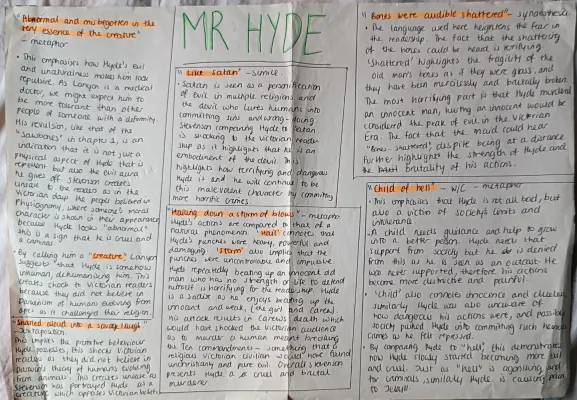 "Abnormal and misbegotten in the
very essence of the creature"
- metaphor
• This emphasises how Hyde's evil
and unnaturalness makes him look
repulsive. As Lanyon is a medical
doctor, we might expect him to
be more tolerant than other
people of someone with a deformity.
His revulsion, like that of the
"Sawbones" in chapter 1, is an
indication that it is not just a
physical aspect of Hyde that is
repulsive but also the evil aura
he gives off. Stevenson creates
unease to the readers as in the
Victorian days the people believed in
Physiognomy, where someone's moral
character is shown in their appearance,
because Hyde looks "abnormal"
this is a sign that he is cruel and
a criminal
• By calling him a "creature" Lanyon
suggests that Hyde is somehow
inhuman, dehumanising him. This
creates shock to Victorian readers
because they did not believe in
Darwinism of humans evolving from
apes as it challenged their religion.
"Snarled aloud into a savage laugh"
This implies the primitive behaviour
Hyde possesses, this shocks Victorian
readers as they did not believe in
Darwin's theory of humans evolving
from animals. This creates unease as
Stevenson has portrayed Hyde as a
creature which opposes Victorian beliefs
MR HYDE
"Like Satan" - simile
• Satan is seen as a personification
of evil in multiple religions and
the devil who lures humans into
committing sins and wrong-doing
Stevenson comparing Hyde to Satan
is shocking to the Victorian reader
ship as it highlights that he is an
embodiment of the devil. This
highlights how terrifying and dangerous
Hyde is and he will continue to be
this malevolent character by committing
more horrific crimes
"Hailing down a storm of blows" - metaphor
Hyde's actions are compared to that of a
natural phenomenon. "Hail" connotes that
Hyde's punches were heavy, powerful and
damaging. "Storm" also implies that the
punches were uncontrollable and
Hyde repeatedly beating up an innocent old
man who has no strength or life to defend
himself is horrifying for the readership. Hyde
is a sadist as he enjoys beating up the
innocent and weak, (the girl and Carew)
His attack results in Carew's death which
would have shocked the Victorian audience
as to murder a human meant breaking
the Ten Commandments - something that a
religious Victorian civilian would have found
unchristianly and pure evil. Overall Stevenson
presents Hyde as a cruel and brutal
murderer
"Bones were audibly shattered" -
• The language used here heightens the fear in
the readership. The fact that the shattering
of the bones could be heard is terrifying.
'Shattered' highlights the fragility of the
old man's bones as if they were glass, and
they have been mercilessly and brutally broken.
The most horrifying part is that Hyde murdered
an innocent man, hurting an innocent would be
considered the peak of evil in the Victorian
Era. The fact that the maid could hear
"Bones shattered", despite being at a distance
further highlights the strength of Hyde and
the brutality of his actions.
"Child of hell" - W/C - metaphor
• This emphasises that Hyde is not all bad, but
also a victim of society's limits and
• A child needs guidance and help to grow
into a better person. Hyde needs that
support from society but he is denied
from this as he is seen as an outcast. He
was never supported, therefore his actions
become more destructive and painful.
• 'Child' also connotes innocence and
similarly Hyde was also unaware of
how dangerous his actions were, and possibly
society pushed Hyde into committing such heinous
crimes as he felt repressed.
• By comparing Hyde to "hell", this demonstrates
how Hyde slowly started becoming more evil
and cruel. Just as "hell" is agonising and
for criminals similarly Hyde is causing pain
to Jekyll.